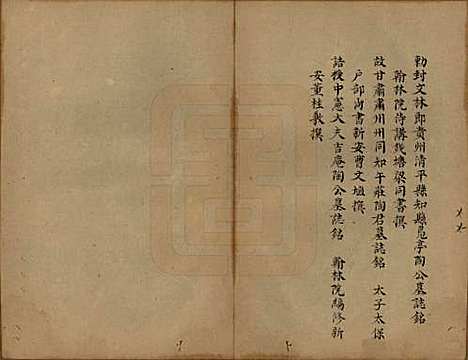 勅封文林郎貴州清平縣知縣鳧亭陶公墓誌銘
翰林院侍講錢塘梁同書撰
故甘肅肅州州同知午莊陶君墓誌銘 太子太保
户部尚書新安曹文埴撰
誥授中憲大夫吉庵陶公墓誌銘 翰林院編修新
安董桂敷撰